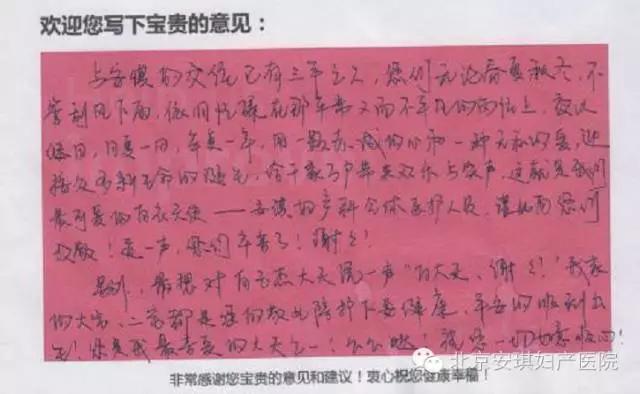 欢迎您写下宝贵的意见：
与安琪的交往已有三年之久，您们无论春夏秋冬，不
管刮风下雨，依旧忙碌在那平常又而不平凡的岗位上，夜以
继日，日复一日，年复一年，用一颗赤诚的心和一种无私的爱，迎
接众多新生命的诞生，给千家万户带来欢乐与笑声，这就是我们
最可爱的白衣天使——安琪的产科全体医护人员，谨此向您们
致敬！道一声，您们辛苦了！谢谢！
另外，最想对白玉杰大夫说一声“白大夫，谢谢！”我家
的大宝、二宝都是您的
健康、平安的顺利出
生！您是我最喜爱的大夫之一！么么哒！祝您一切如意顺心！
非常感谢您宝贵的意见和建议！衷心祝您健康幸福！
北京安琪妇产医院